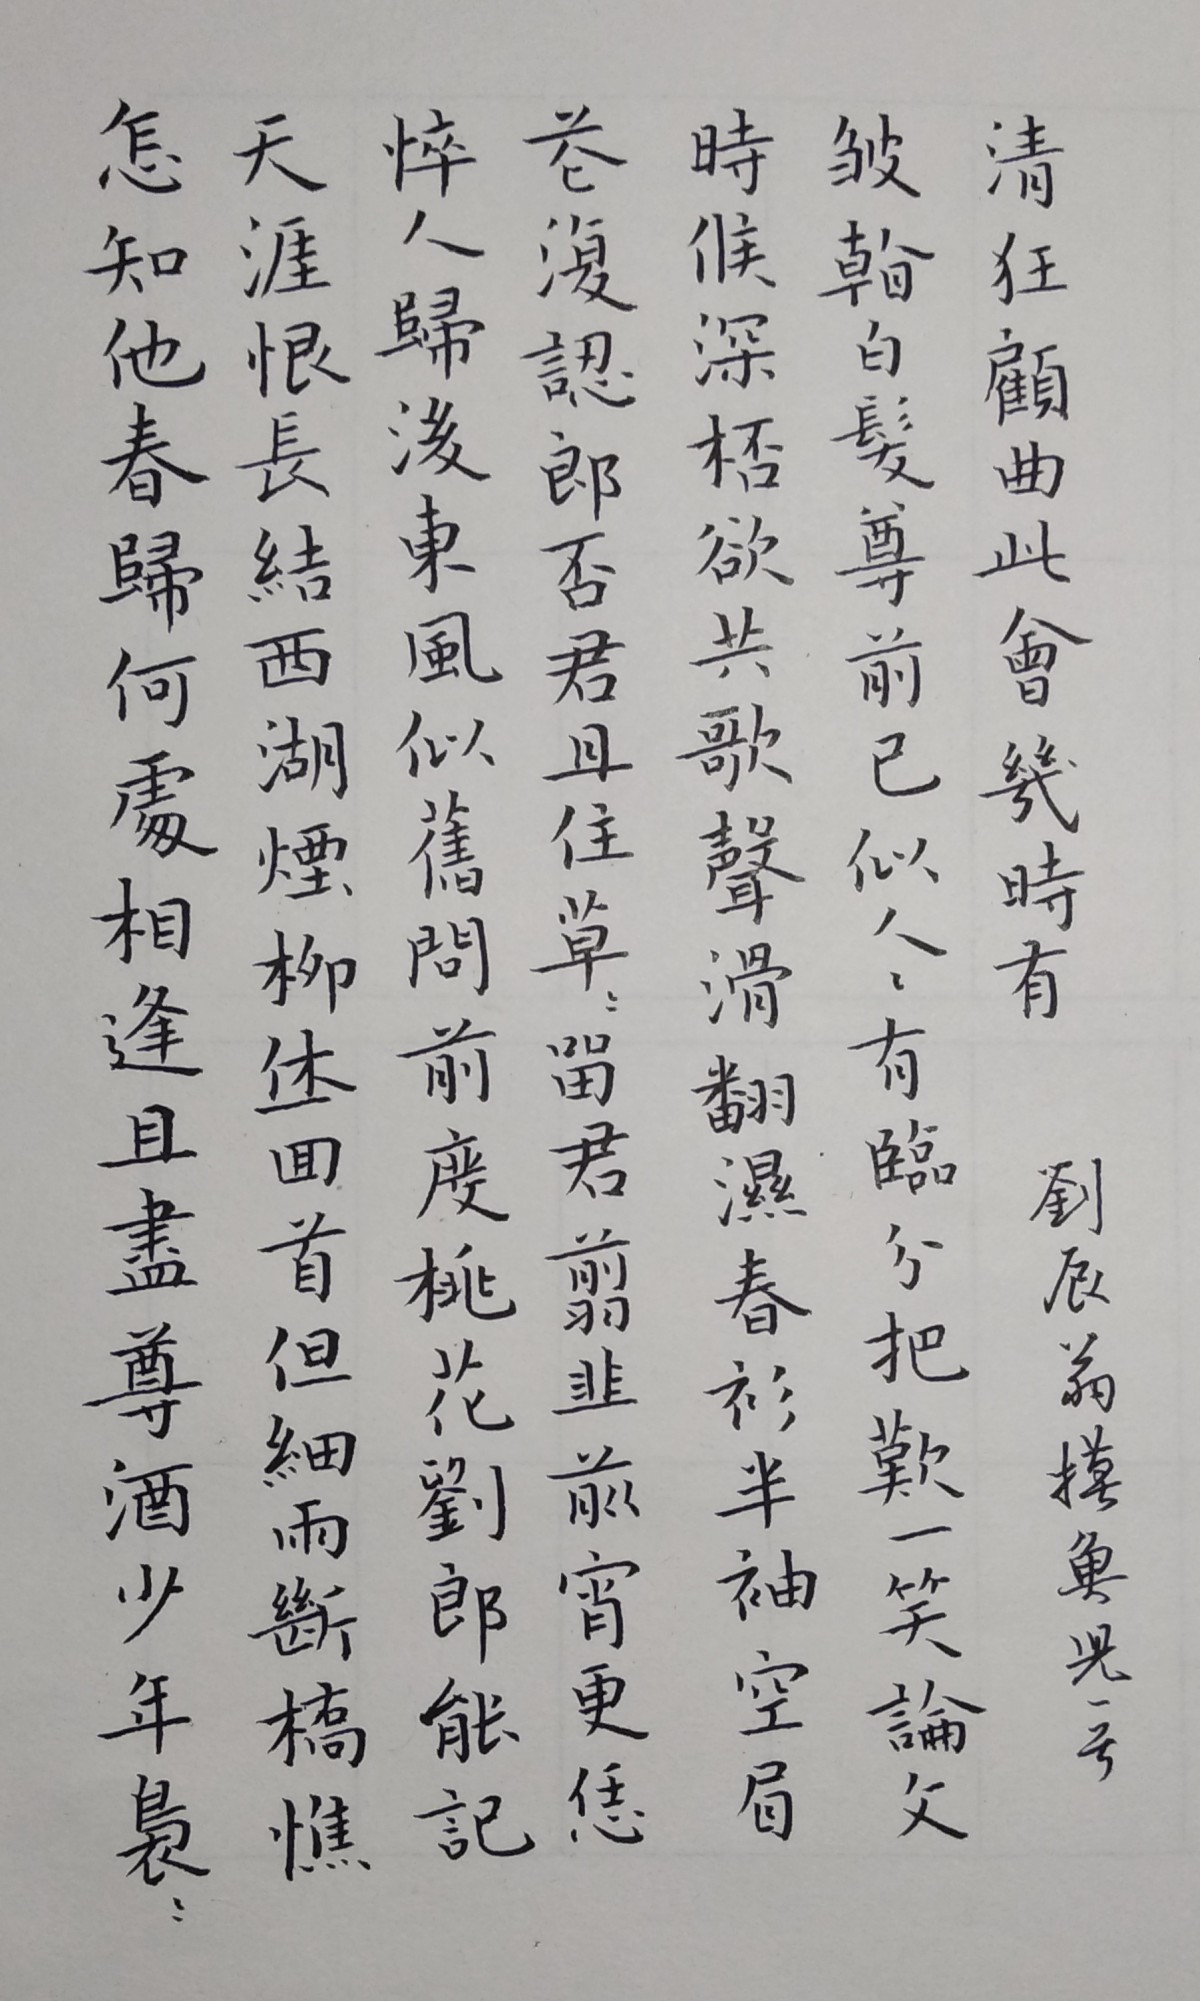 怎知他春歸何處相逢且盡尊酒少年裊〻
天涯恨長結西湖煙柳休回首但細雨斷橋憔
悴人歸後東風似舊問前度桃花劉郎能記
花復認郎否君且住草〻留君翦韭前宵更恁
時候深桮欲共歌聲滑翻濕春衫半袖空眉
皺看白髮尊前已似人〻有臨分把歎一笑論文
清狂顧曲此會幾時有
劉辰翁摸魚兒一首